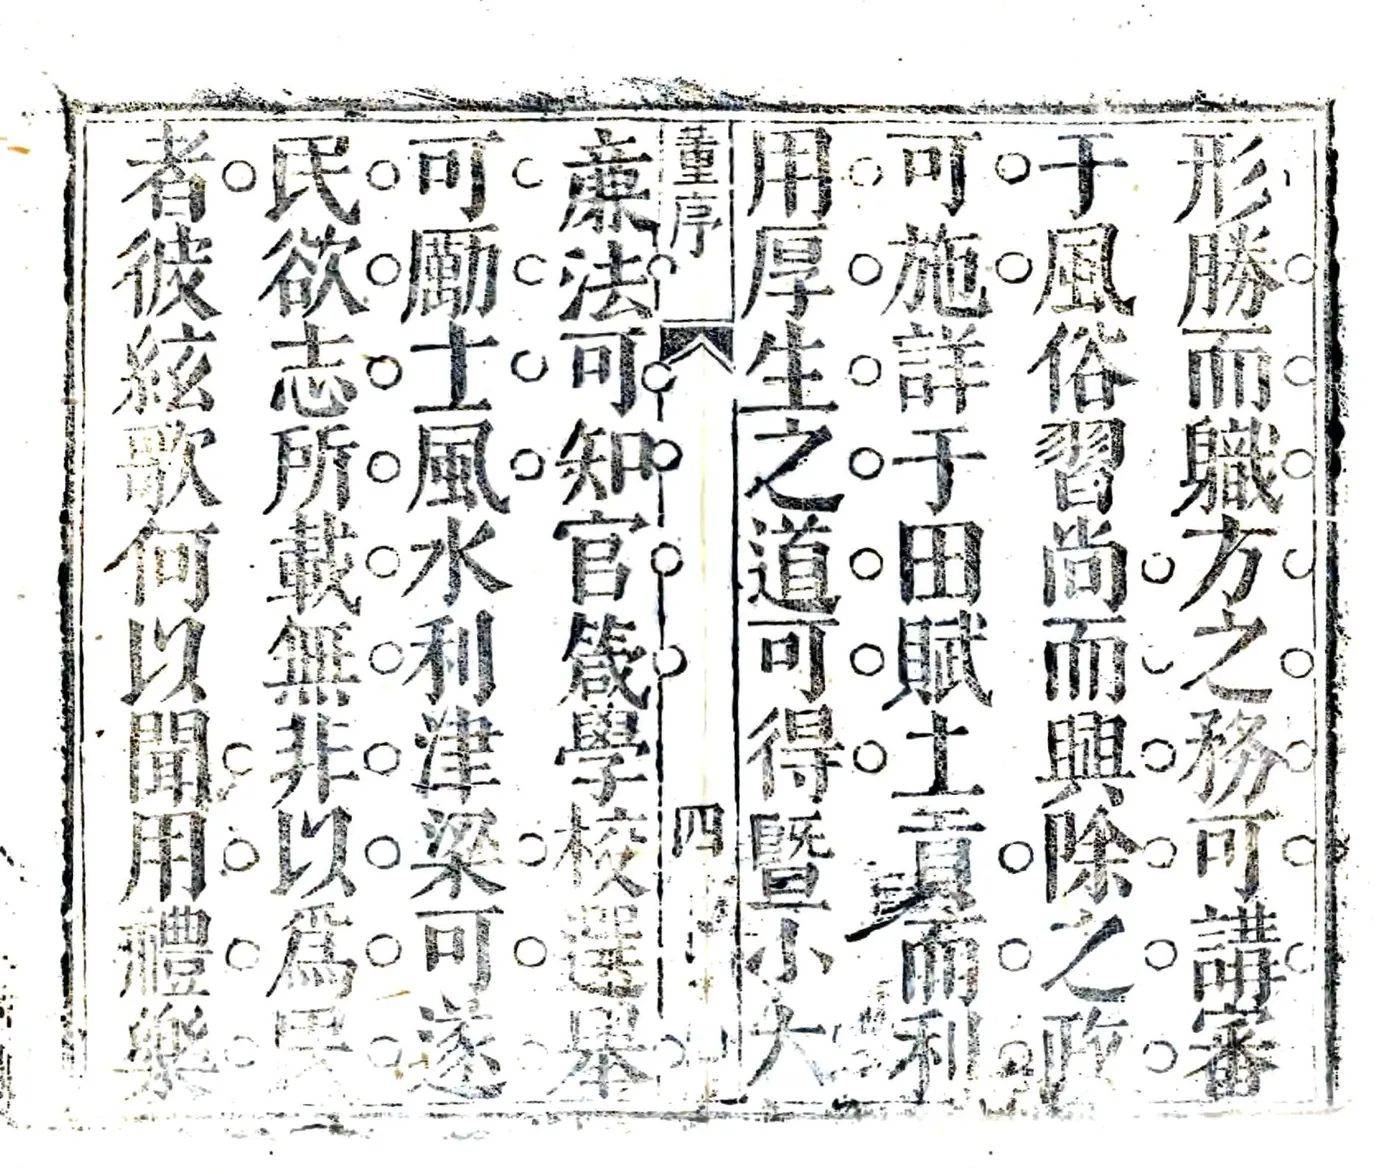 形勝而職方之務可講審
于風俗習尚而興除之政
可施詳于田賦土貢而利
用厚生之道可得暨小大
董序
四
亷法可知官箴學校選舉
可勵士風水利津梁可遂
民欲志所載無非以爲
者彼絃歌何以聞用禮樂